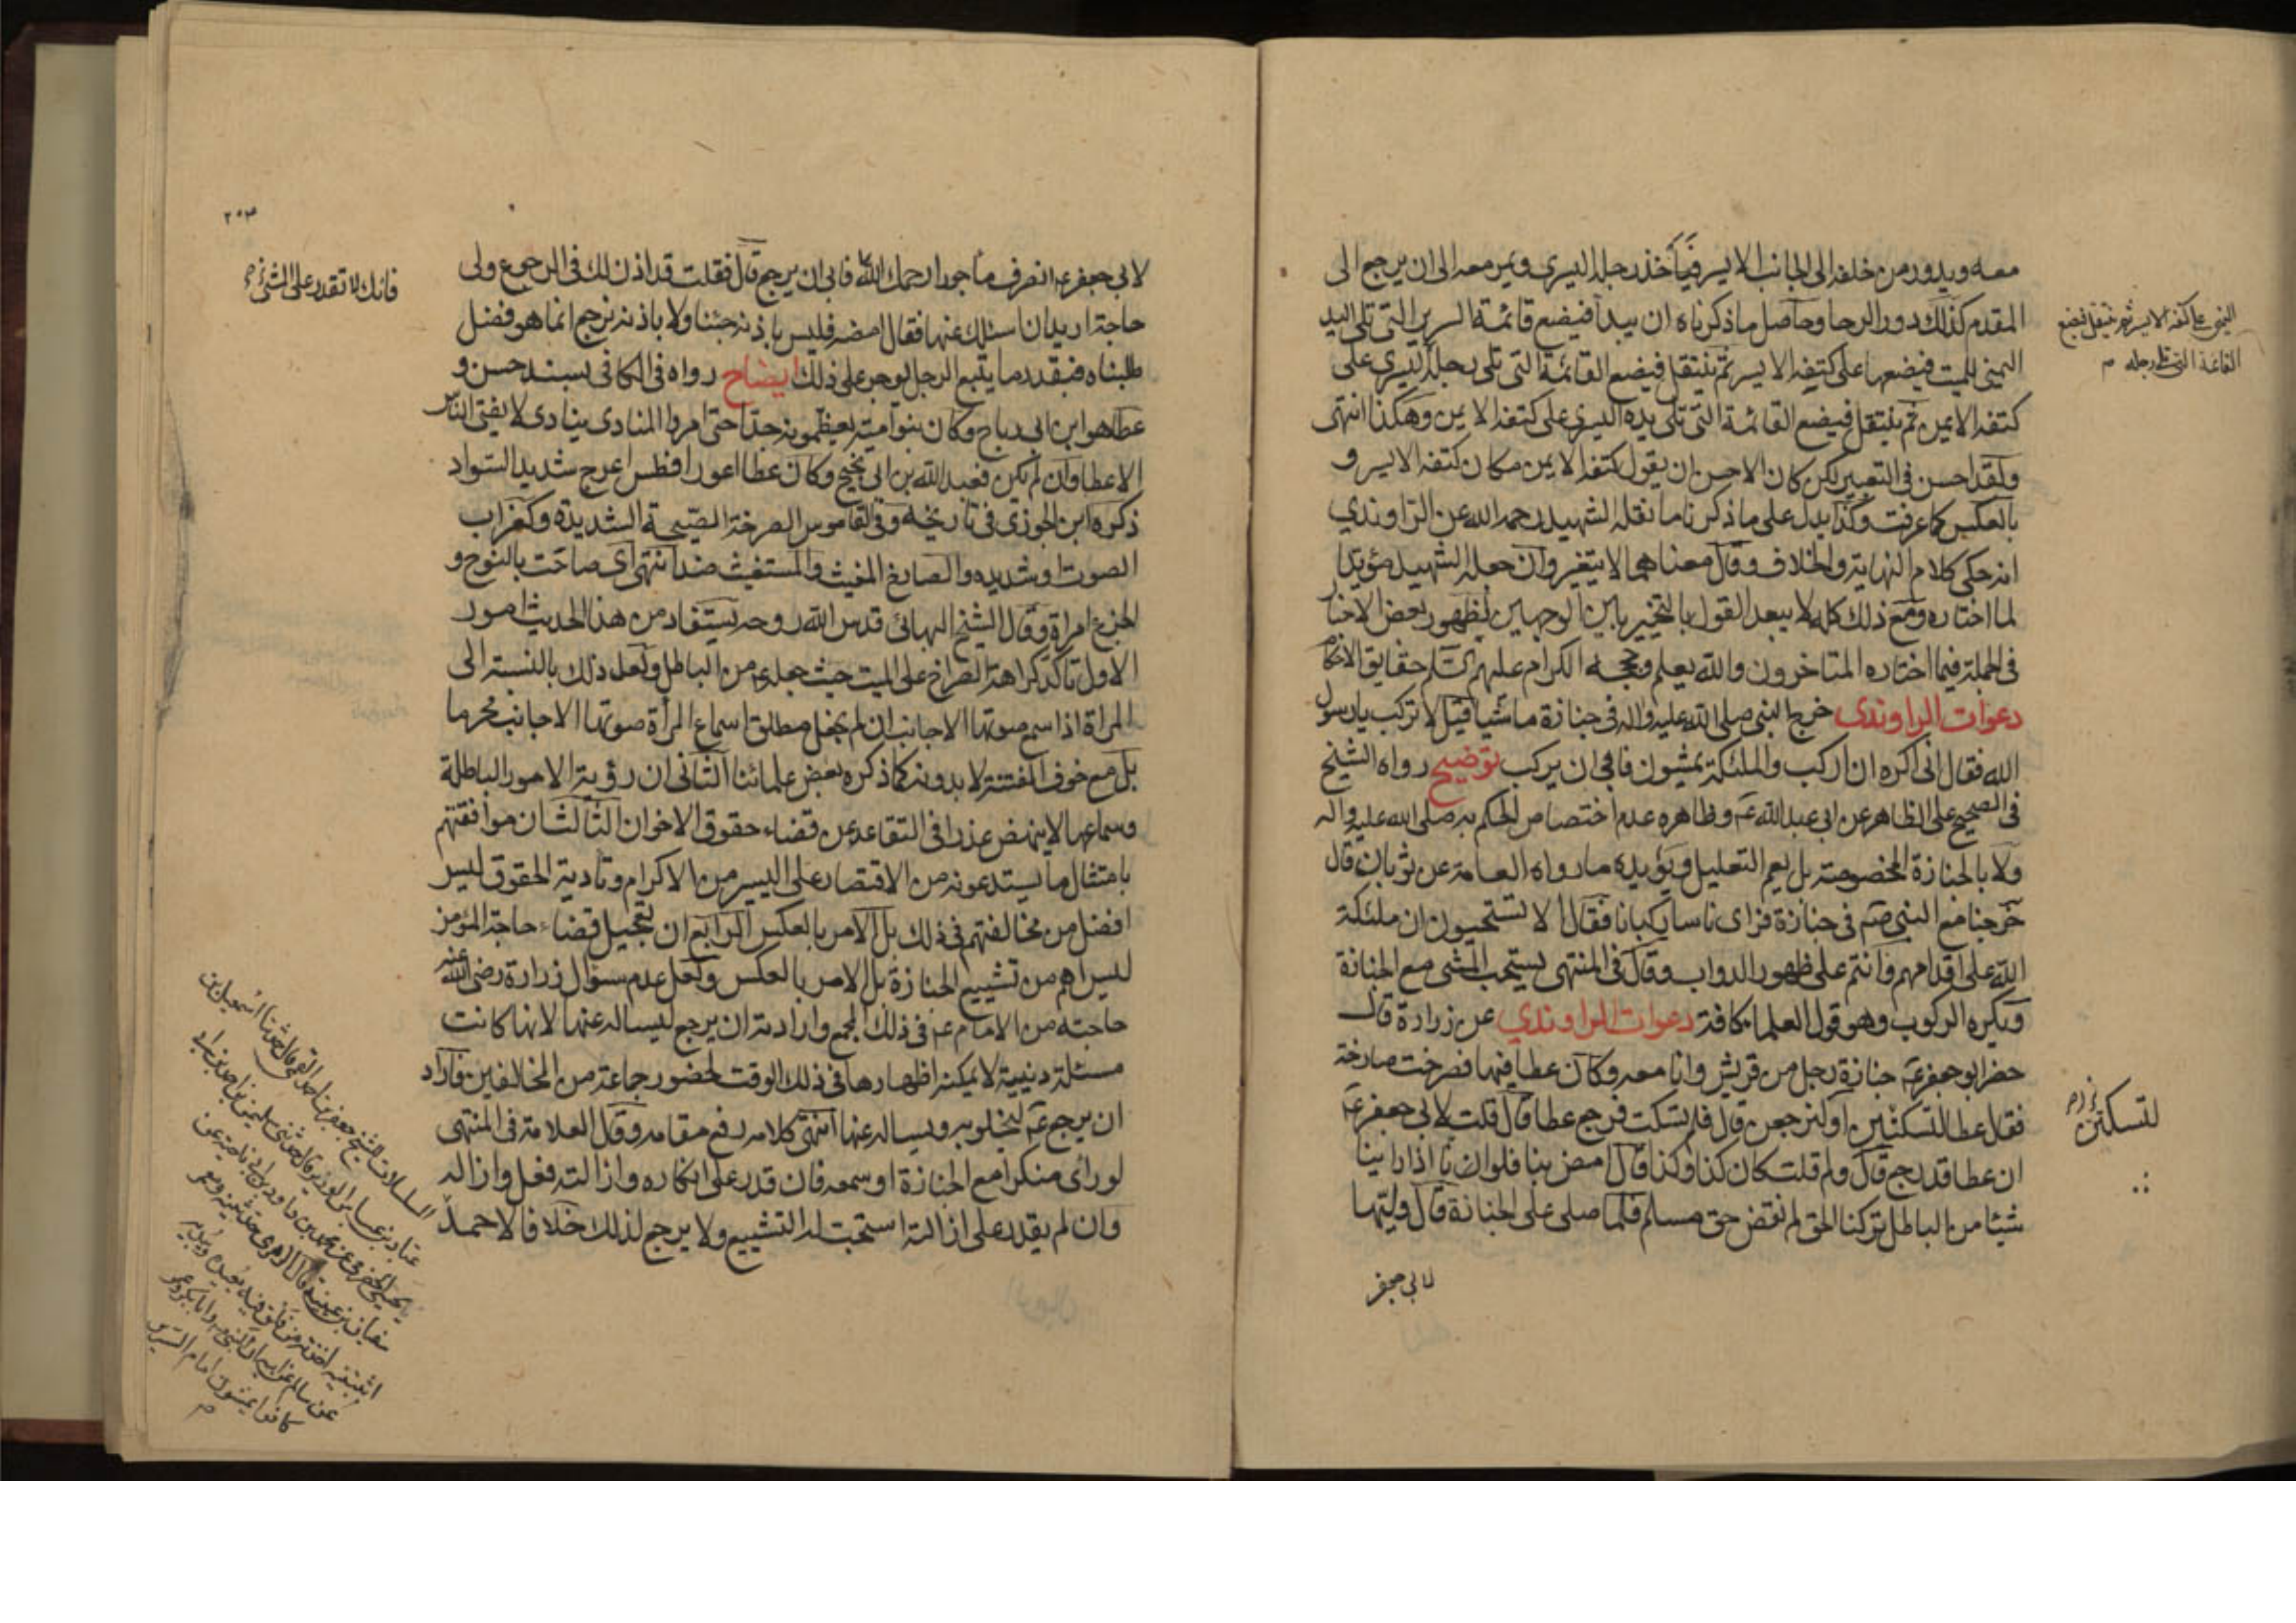 معه ويدور من خلفه الى الجانب الايسر فيأخذ رجله اليسرى ويمر معه الى ان يرجع الى
المقدم كذلك دور الرحا وحاصل ما ذكرناه ان يبدأ فيضع قائمة السرير التى تلى اليد
اليمنى للميت فيضعها على كتفه الايسر ثم ينتقل فيضع القائمة التى تلى رجله اليسرى على
كتفه الايمن ثم ينتقل فيضع القائمة التى تلى يده اليسرى على كتفه الايمن وهكذا انتهى
ولقد احسن فى التعبير لكن كان الاحسن ان يقول كتفه الايمن مكان كتفه الايسر و
بالعكس كما عرفت وكذا يدل على ما ذكرنا ما نقله الشهيد رحمه الله عن الراوندي
انه حكى كلام النهاية والخلاف وقال معناهما لا يتغير وان جعله الشهيد مؤيدا
لما اختاره ومع ذلك كله لا يبعد القول بالتخيير بين الوجهين لظهور بعض الاخبار
فى الجملة فيما اختاره المتاخرون والله يعلم وحججه الكرام عليهم السلم حقايق الاحكام
دعوات الراوندى خرج النبى صلى الله عليه واله فى جنازة ماشيا فقيل الا تركب يا رسول
الله فقال انى اكره ان اركب والملئكة يمشون فابى ان يركب توضيح رواه الشيخ
فى الصحيح على الظاهر عن ابى عبد الله ع وظاهره عدم اختصاص الحكم به صلى الله عليه واله
ولا بالجنازة المخصوصة بل يعم التعليل ويؤيده ما رواه العامة عن ثوبان قال
خرجنا مع النبى صم فى جنازة فراى ناسا ركبانا فقال الا تستحيون ان ملئكة
الله على اقدامهم وانتم على ظهور الدواب وقال فى المنتهى يستحب المشى مع الجنازة
ويكره الركوب وهو قول العلما كافة دعوات الراوندي عن زرارة قال
حضر ابو جعفر ع جنازة رجل من قريش وانا معه وكان عطا فيها فصرخت صارخة
فقال عطا لتسكتين او لنرجعن قال فلم تسكت فرجع عطا قال قلت لابى جعفر ع
ان عطا قد رجع قال ولم قلت كان كذا وكذا قال امض بنا فلو انا اذا راينا
شيئا من الباطل تركنا الحق لم نقض حق مسلم فلما صلى على الجنازة قال وليها
لابى جعفر
اليمنى على كتفه الايسر ثم ينتقل فيضع
القائمة التى تلى رجله م
لتسكتن
٢٠٣
لابى جعفر ع انصرف ماجورا رحمك الله فابى ان يرجع قال فقلت قد اذن لك فى الرجوع ولى
حاجة اريد ان اسئلك عنها فقال امضه فليس باذنه جئنا ولا باذنه نرجع انما هو فضل
طلبناه فبقدر ما يتبع الرجل يوجر على ذلك ايضاح رواه فى الكافى بسند حسن و
عطا هو ابن ابى رباح وكان بنو امية يعظمونه جدا حتى امروا المنادى ينادى لا يفتى الناس
الا عطا وان لم يكن فعبد الله بن ابى نجيح وكان عطا اعور افطس اعرج شديد السواد
ذكره ابن الجوزى فى تاريخه وفى القاموس الصرخة الصيحة الشديدة وكغراب
الصوت او شديده والصارخ المغيث والمستغيث ضد انتهى اى صاحت بالنوح و
الجزع امراة وقال الشيخ البهائى قدس الله روحه يستفاد من هذا الحديث امور
الاول تاكد كراهة الصراخ على الميت حيث جعله ع من الباطل ولعل ذلك بالنسبة الى
المراة اذا سمع صوتها الاجانب ان لم يجعل مطلق اسماع المرأة صوتها الاجانب محرما
بل مع خوف الفتنة لا بدونه كما ذكره بعض علمائنا الثانى ان رؤية الامور الباطلة
وسماعها لا ينهض عذرا فى التقاعد عن قضاء حقوق الاخوان الثالث ان موافقتهم
بامتثال ما يستدعونه من الاقتصار على اليسير من الاكرام وتادية الحقوق ليس
افضل من مخالفتهم فى ذلك بل الامر بالعكس الرابع ان تعجيل قضاء حاجة المؤمن
ليس اهم من تشييع الجنازة بل الامر بالعكس ولعل عدم سؤال زرارة رضى الله عنه
حاجته من الامام ع فى ذلك المجمع وارادته ان يرجع ليساله عنها لانها كانت
مسئلة دينية لا يمكنه اظهارها فى ذلك الوقت لحضور جماعة من المخالفين فاراد
ان يرجع ع ليخلو به ويساله عنها انتهى كلامه رفع مقامه وقال العلامة فى المنتهى
لو رأى منكرا مع الجنازة او سمعه فان قدر على انكاره وازالته فعل وازاله
وان لم يقدر على ازالته استحب له التشييع ولا يرجع لذلك خلافا لاحمد
فانك لا تقدر على المشى
المسلسلات للشيخ جعفر بن احمد القمى قال حدثنا اسمعيل بن
عباد بن عباس الوزير قال حدثنى سليمن بن احمد
عن محمد بن داود عن
سفيان بن عيينة قال الزهرى حدثنيه
عن سالم عن ابيه ان النبى وابا بكر وعمر
كانوا يمشون امام السرير
م